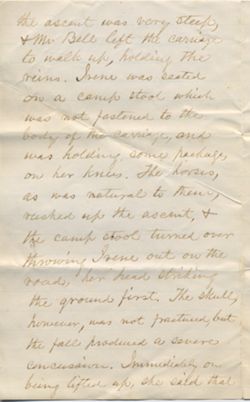 the ascent was very steep,
& Mr Bell left the carriage
to walk up, holding the
reins. Irene was seated
on a camp stool which
was not fastened to the
body of the carriage, and
was holding some package
on her knees. The horses,
as was natural to them,
rushed up the ascent, &
the camp stool turned over
throwing Irene out on the
road, her head striking
the ground first. The skull,
however, was not fractured, but
the fall produced a severe
concussion. Immediately on
being lifted up, she said that